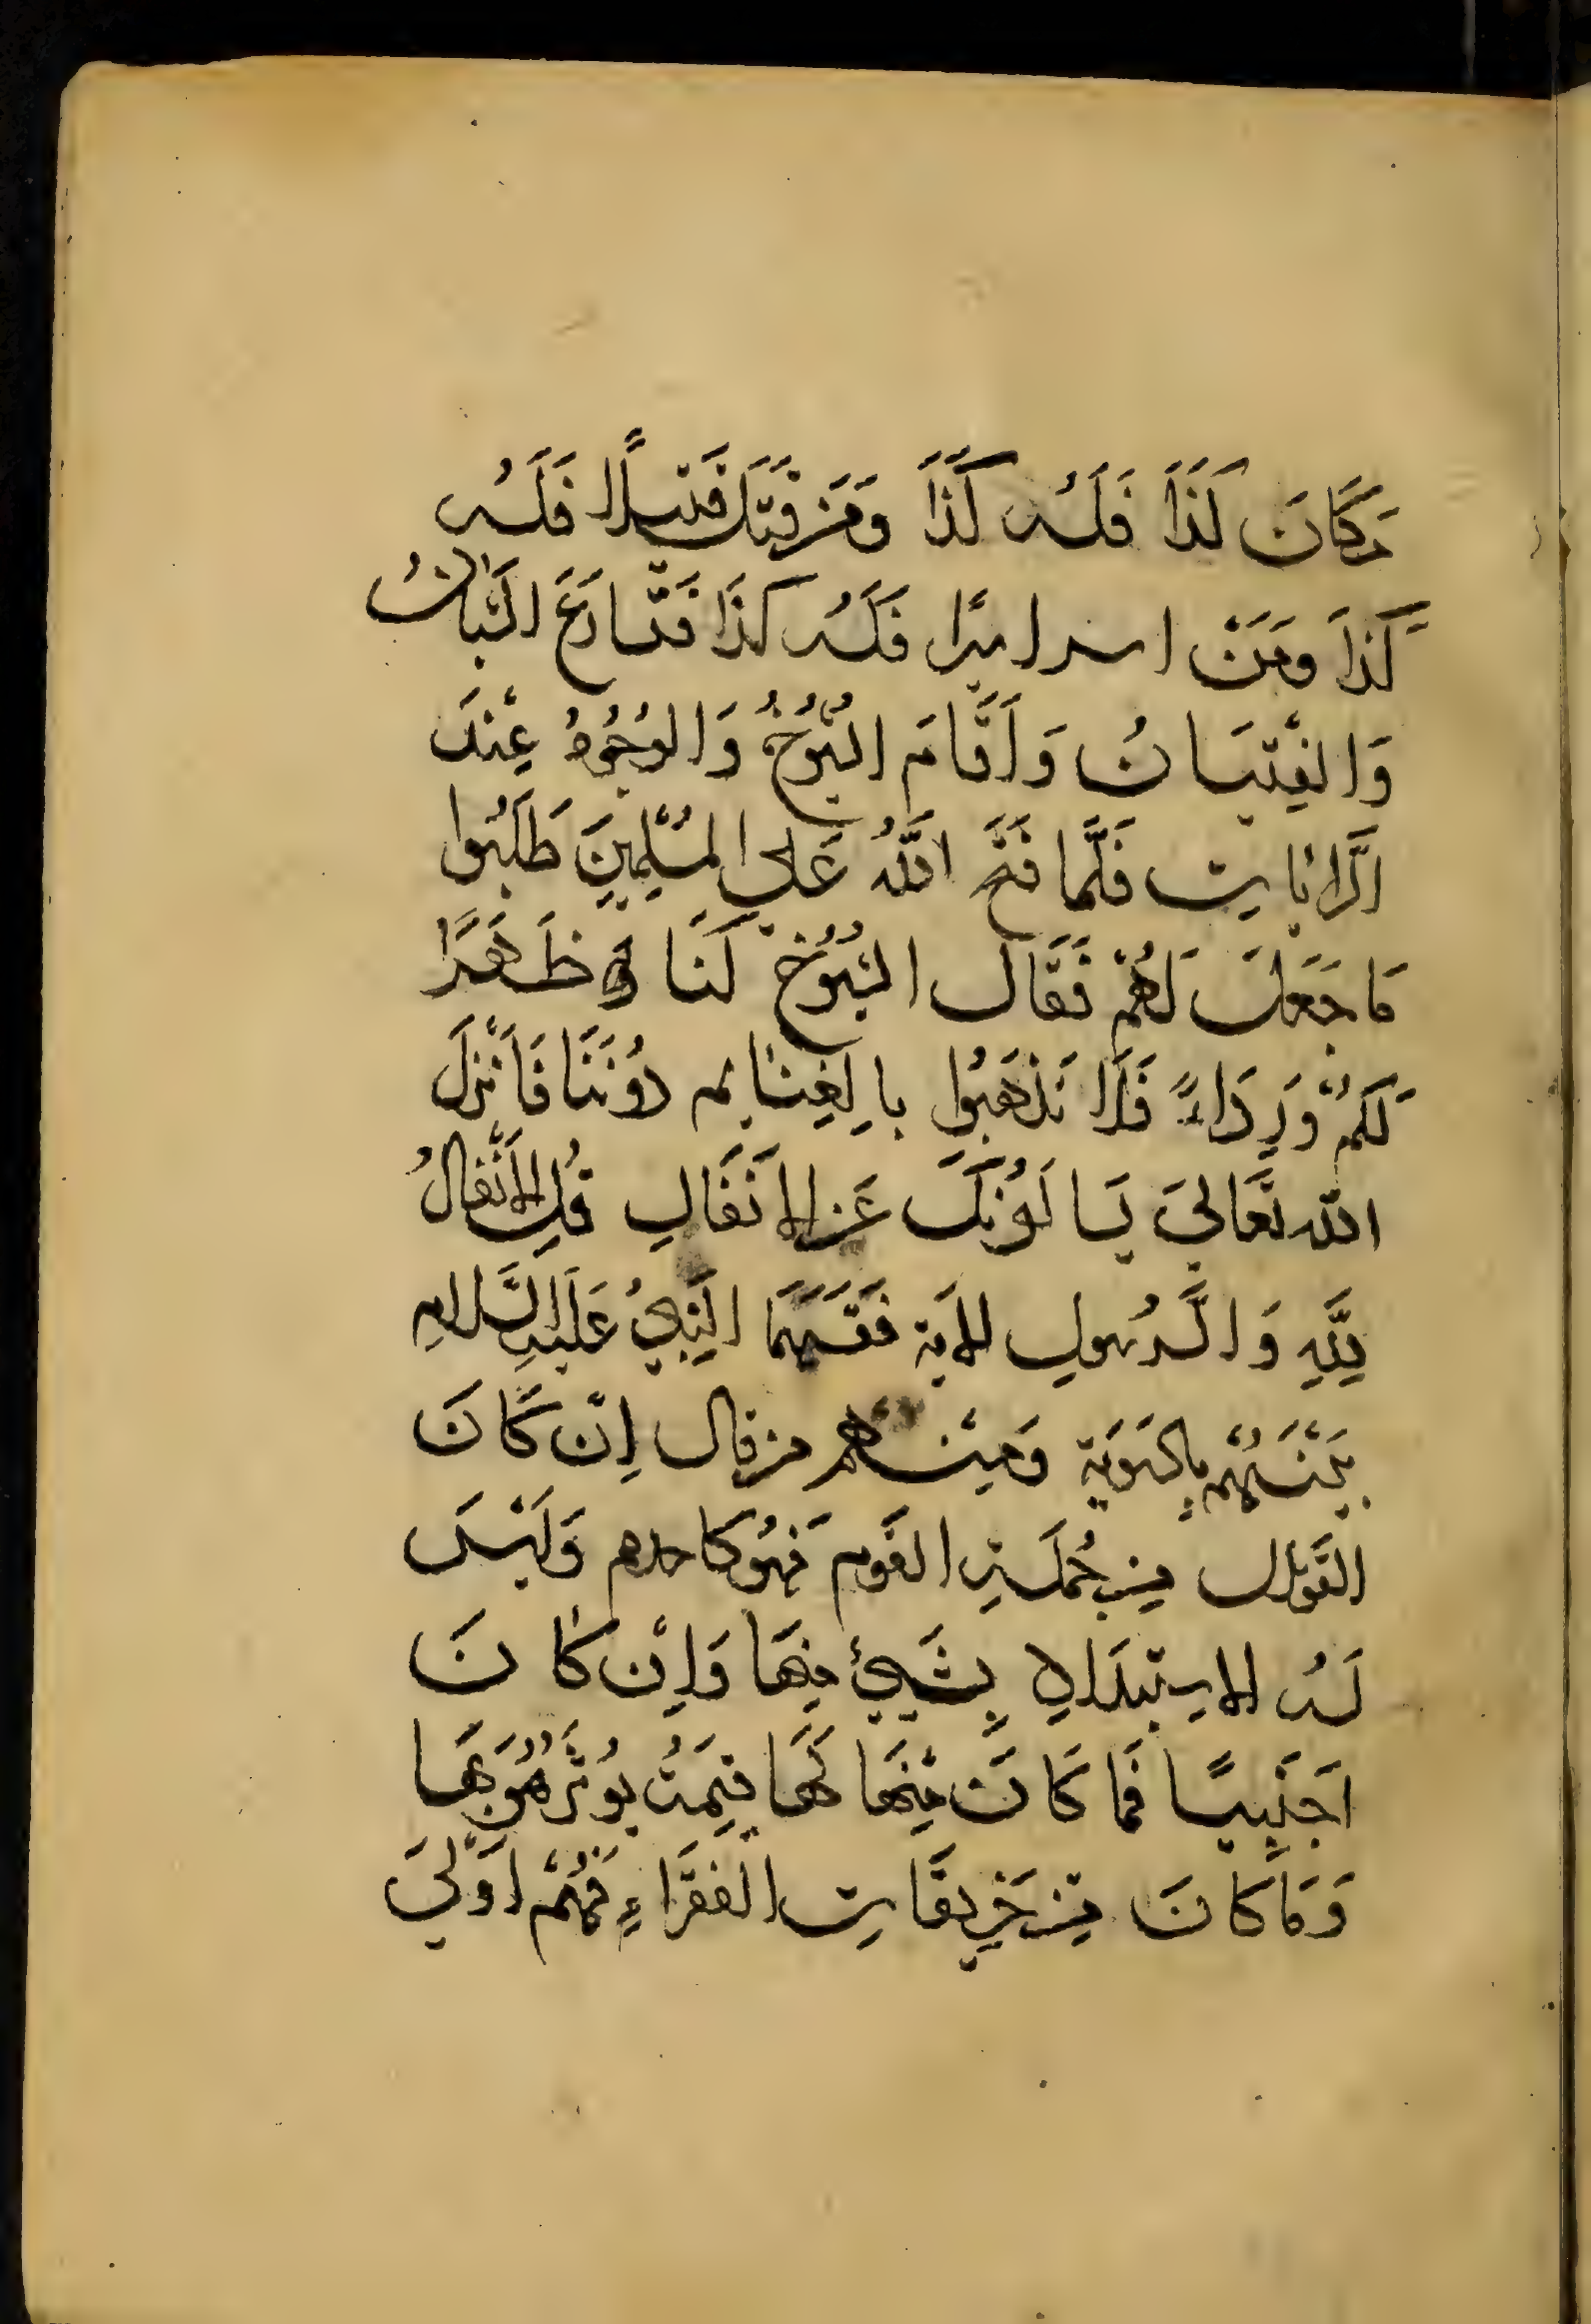 مَكَانَ كَذَا فَلَهُ كَذَا وَمَن قَتَلَ قَتِيلًا فَلَهُ
كَذَا وَمَنْ اسر اسيرًا فَلَهُ كَذَا فَتَسَارَعَ الشُبانُ
وَالفِتْيَانُ وَأَقَامَ الشُيُوخُ وَالوُجُوهُ عِنْدَ
الرَّايَاتِ فَلَمَّا فَتَحَ اللَّهُ عَلَى المُسْلِمِينَ طَلَبُوا
مَا جَعَلَ لَهُمْ فَقَالَ الشُيُوخُ كُنَا ظَهرًا
لَكُمْ وَرِدَاءً فَلَا تَذهَبُوا بالغِنَايم دُونَنَا فَأَنْزَلَ
الله تَعَالَى يَسالُونَكَ عَنِ الانْفَالِ قُلِ الأَنْفالُ
لِلَّهِ وَالرَّسُولِ الاية فَقَسَمَهَا النَبِيُ عَلَيهِ السَّلام
بَيْنَهُمْ بِالسَوَيَة وَمِنْهم من قال اِنْ كَانَ
القَوَّال مِن جُمْلَةِ القَوم فَهُوَ كاحدهم وَلَيْسَ
لَهُ الاسِتبدَالِ بِشَيئ مِنهَا وَاِنْ كَانَ
اَجْنَبِيًا فَمَا كَانَ مِنْهَا لَهَا قِيمَةُ يُوثَرُ هُوَ بِهَا
وَمَا كَانَ مِن خَرِيقَاتِ الفقَرَاءِ فَهُمْ اَوْلَي